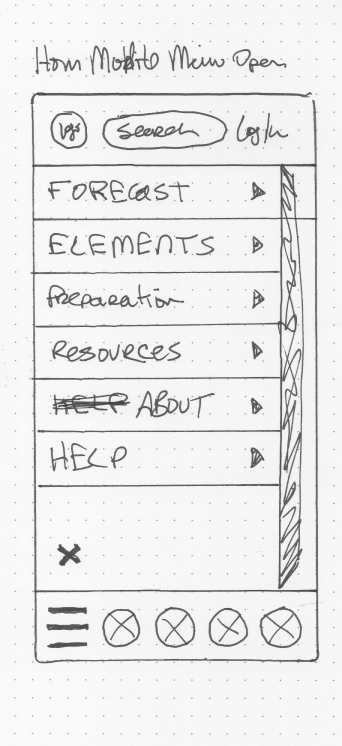 Hom Mobile Menu Open
logo Search Log In
FORECAST
ELEMENTS
Preparation
RESOURCES
HELP ABOUT
HELP